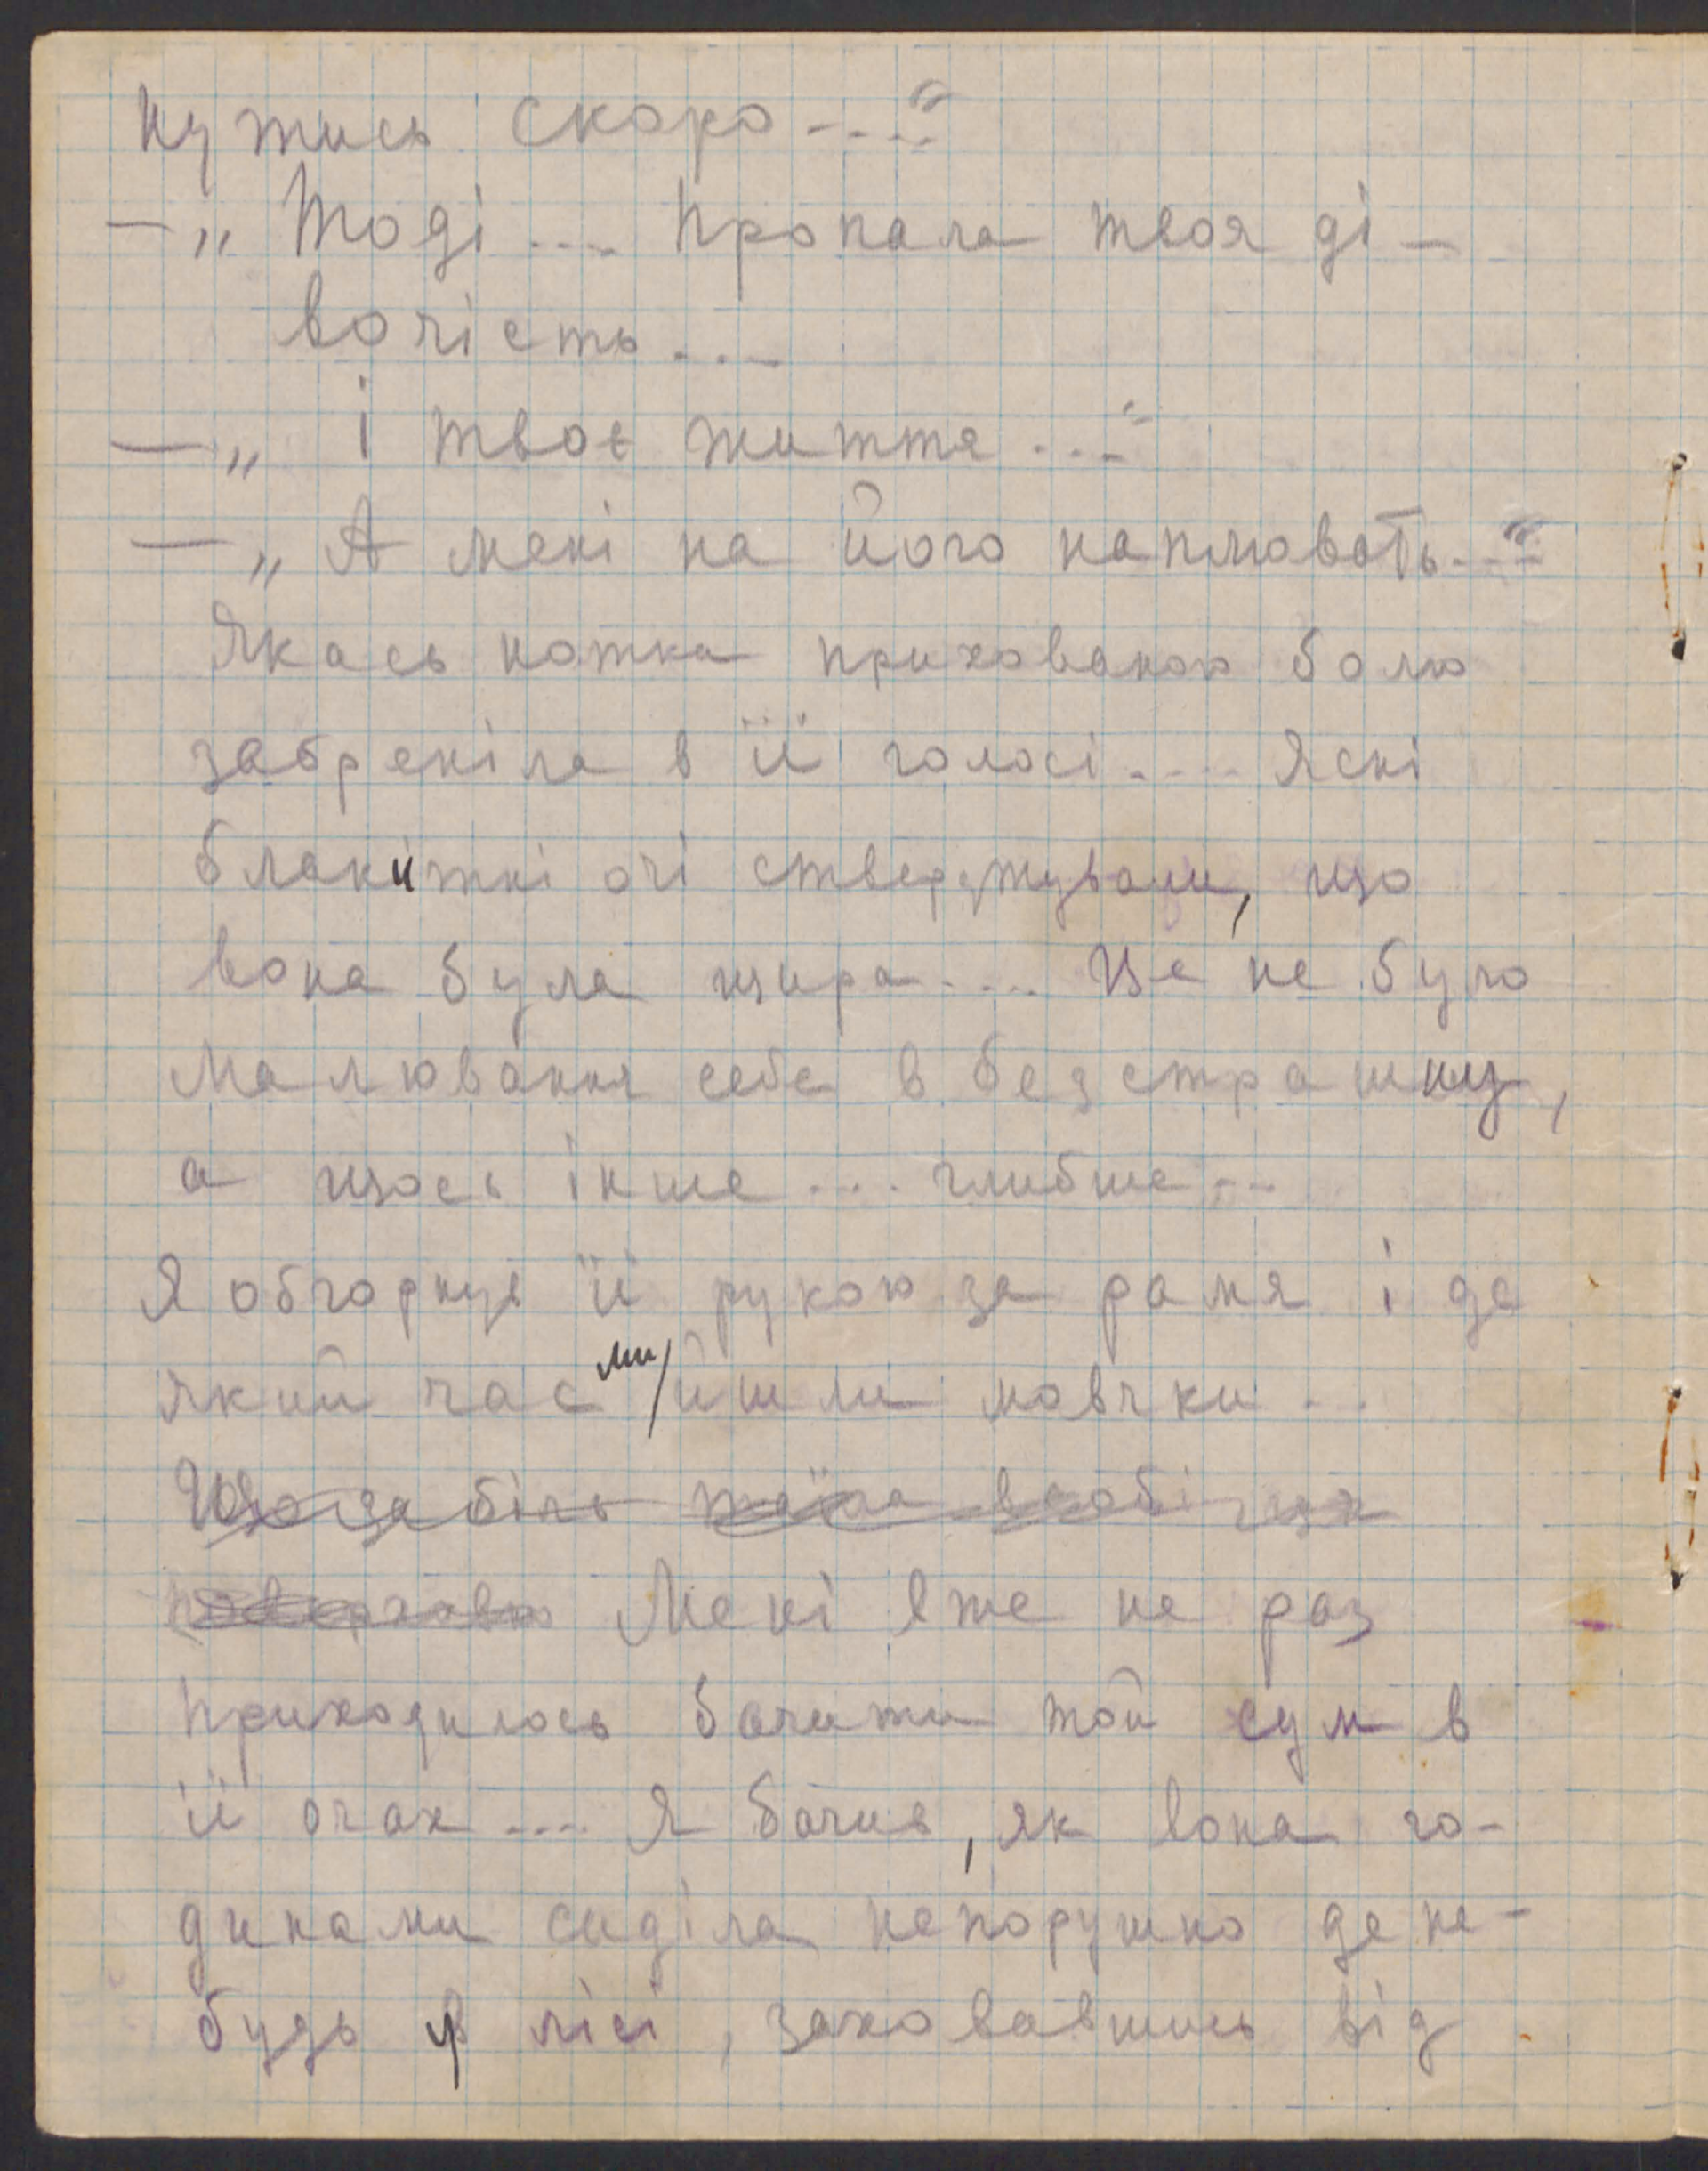 нутись скоро....“
—„ Тоді.... Пропала твоя ді-
вочість....
—„ І твоє життя...“
—„ А мені на його наплювать...“
Якась нотка прихованою болю
забреніла в її голосі.... Ясні
блакитні очі стверджували, що
вона була щира.... Це не було
малювання себе в безстрашну,
а щось інше.... глибше...
Я обгорнув її рукою за рамя і де
який час ми йшли мовчки...
Що за біль
Мені вже не раз
приходилось бачити той сум в
її очах.... Я бачив, як вона го-
динами сиділа непорушно де не-
будь у лісі, заховавшись від